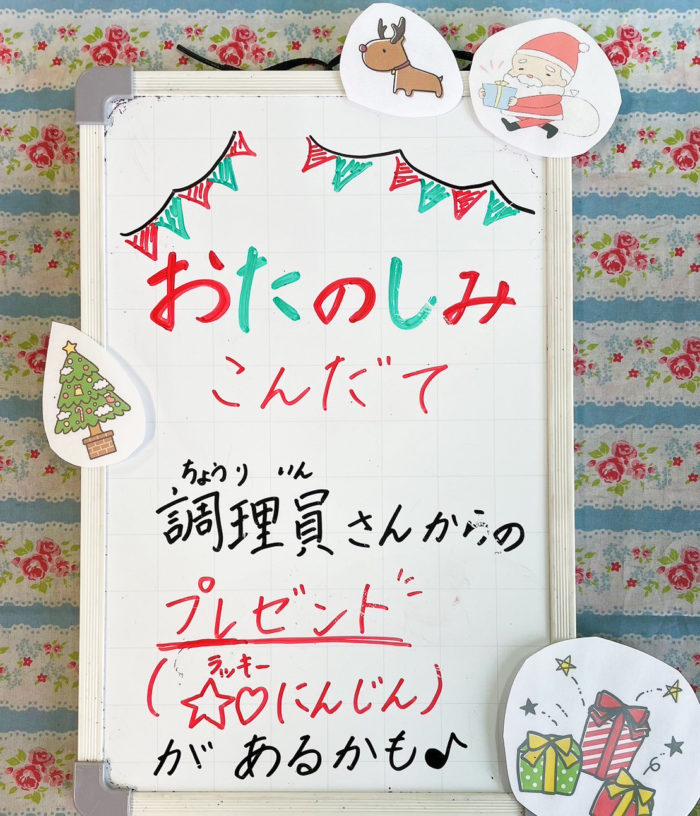 おたのしみ
こんだて
ちょうり いん
調理員さんからの
プレゼント
ラッキー
(☆♡にんじん)
があるかも♪